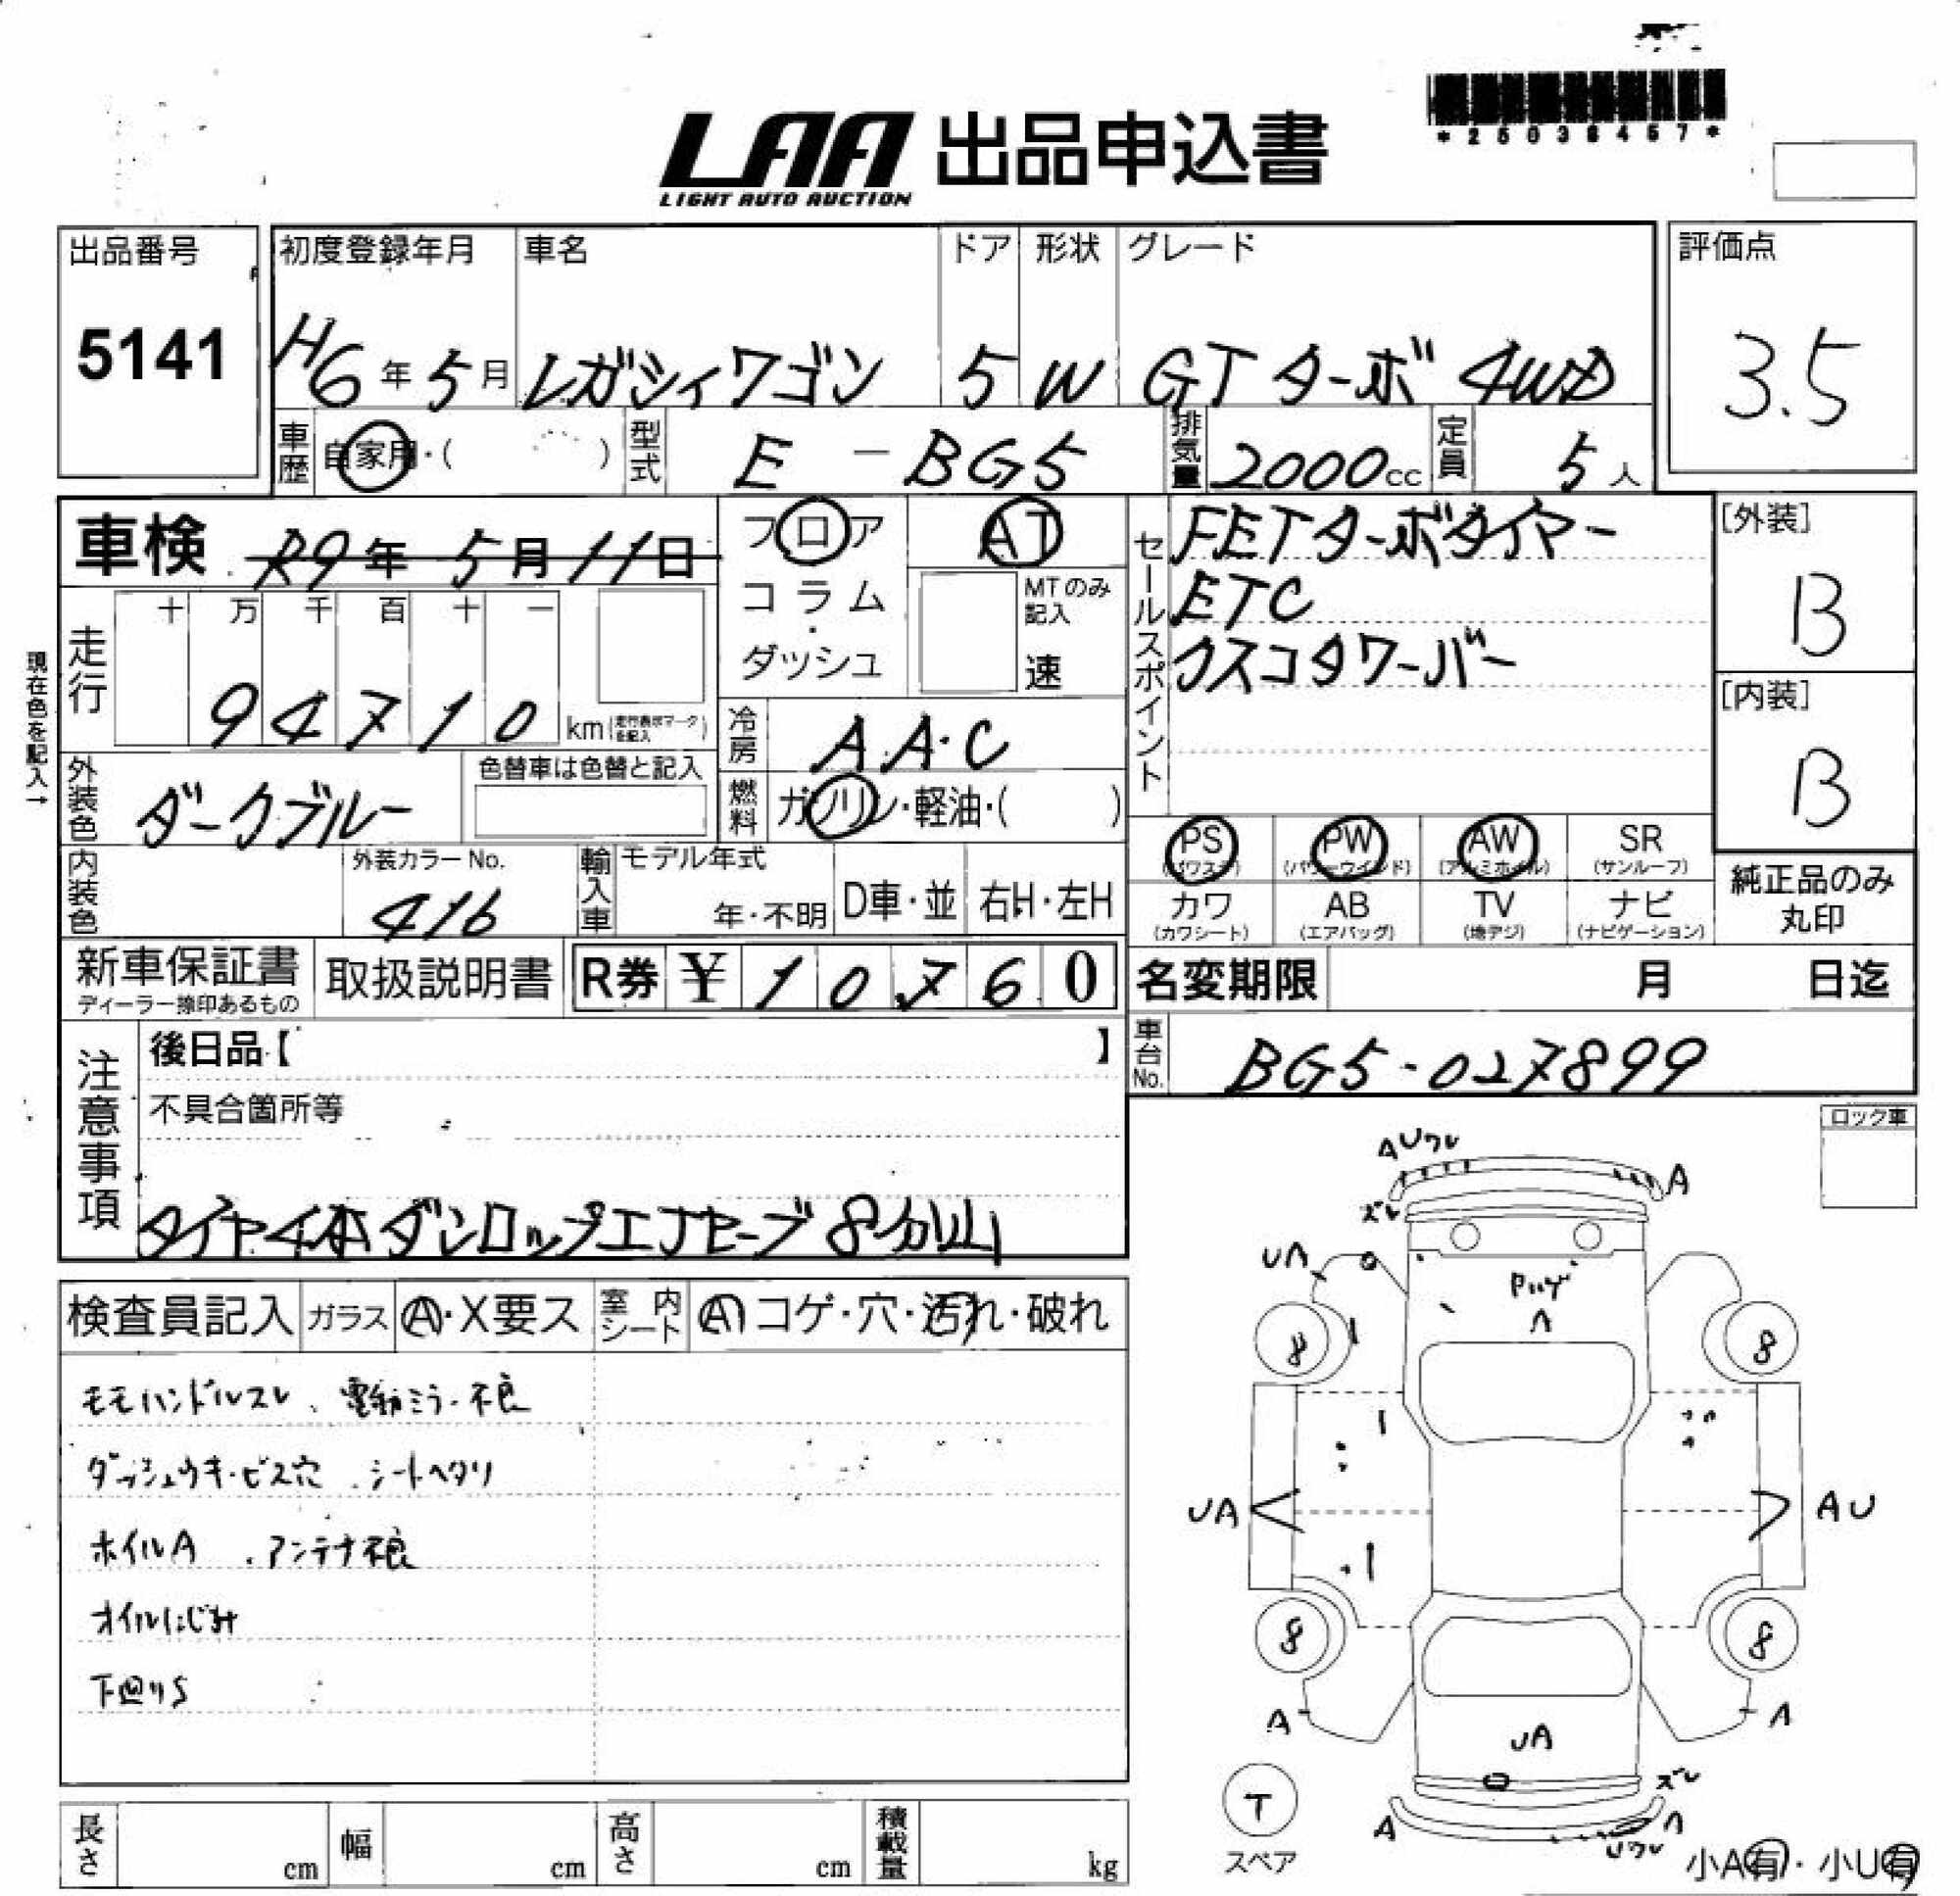 LAA 出品申込書
LIGHT AUTO AUCTION
出品番号
5141
初度登録年月 車名 ドア 形状 グレード
H6年5月 レガシィワゴン 5 W GTターボ 4WD
評価点
3.5
車歴 自家用・( ) 型式 E-BG5 排気量 2000cc 定員 5人
車検 R9年5月11日
フロア
コラム
・
ダッシュ
AT
MTのみ記入
速
セールスポイント
FETターボタイマー
ETC
クスコタワーバー
[外装]
B
[内装]
B
現在色を記入→
走行 十 万 千 百 十 一
94710 km(走行表示マークを記入)
冷房 AAC
外装色 ダークブルー 色替車は色替と記入
燃料 ガソリン・軽油・( )
内装色 外装カラーNo. 416
輸入車 モデル年式 年・不明 D車・並 右H・左H
PS (パワステ) PW (パワーウインド) AW (アルミホイル) SR (サンルーフ)
カワ (カワシート) AB (エアバッグ) TV (地デジ) ナビ (ナビゲーション)
純正品のみ
丸印
新車保証書 ディーラー捺印あるもの 取扱説明書 R券 ¥10,760
名変期限 月 日迄
車台No. BG5-027899
注意事項
後日品【 】
不具合箇所等
タイヤ4本ダンロップエナセーブ8分山
ロック車
検査員記入 ガラス A・X要ス 室内シート A コゲ・穴・汚れ・破れ
モモハンドルスレ、電動ミラー不良
ダッシュウキ・ビス穴、シートヘタリ
ホイルA、アンテナ不良
オイルにじみ
下回りS
AUワレ
A
ズレ
UA
Pハゲ
A
8
8
UA
AU
8
8
A
A
UA
ズレ
A
A
Uワレ
T
スペア
小A有・小U有
長さ cm 幅 cm 高さ cm 積載量 kg